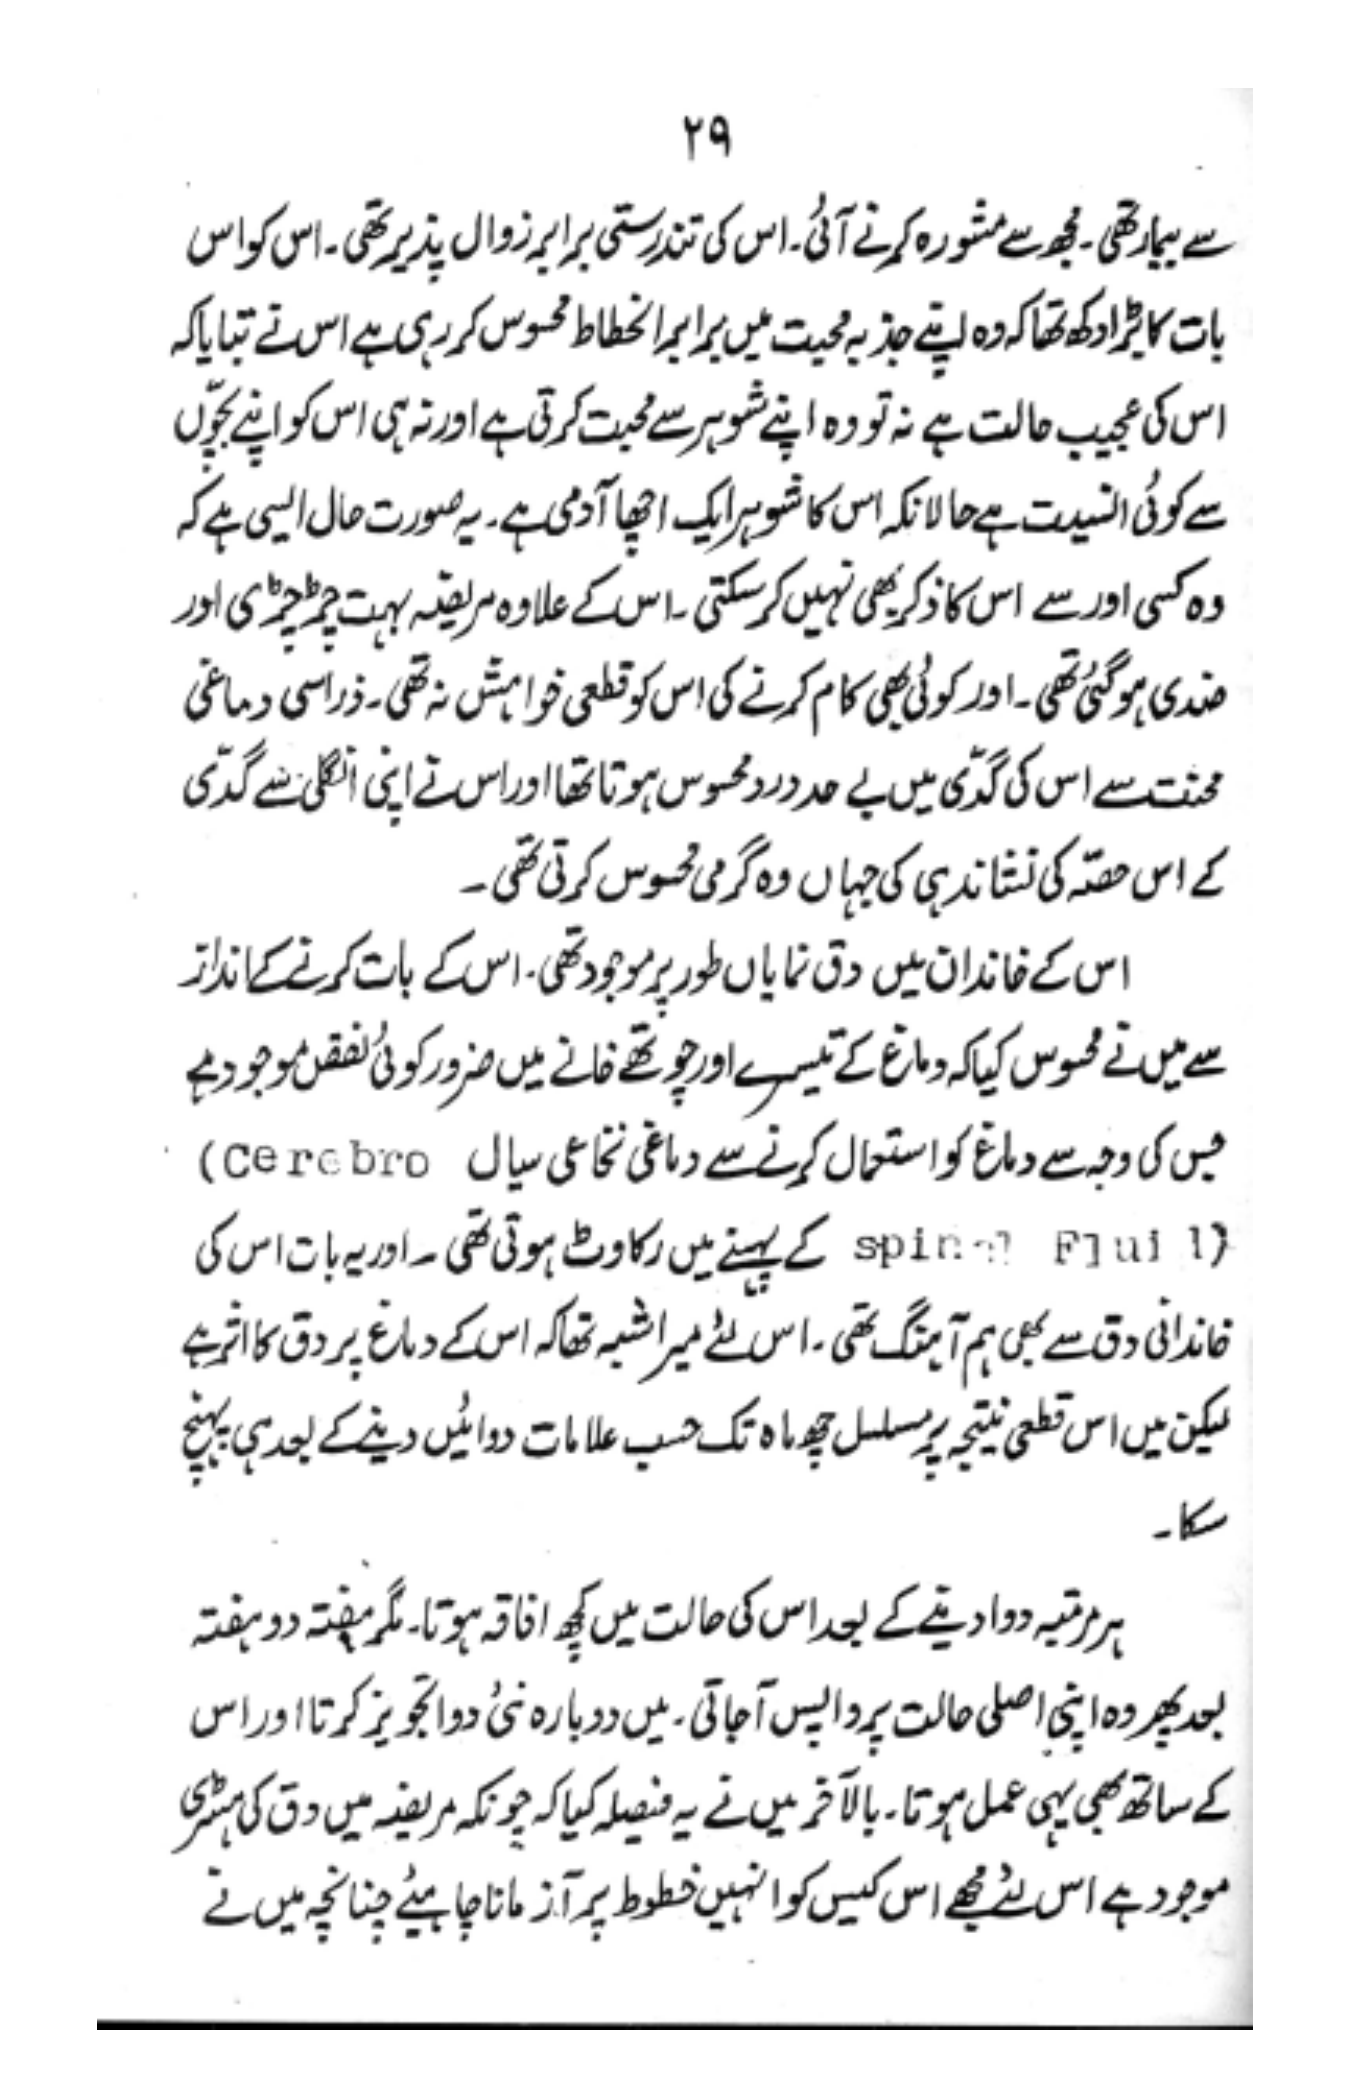 ۲۹
سے بیمار تھی۔ مجھ سے مشورہ کرنے آئی۔ اس کی تندرستی برابر زوال پذیر تھی۔ اس کو اس
بات کا بڑا دکھ تھا کہ وہ اپنے جذبہ محبت میں برابر انحطاط محسوس کر رہی ہے اس نے بتایا کہ
اس کی عجیب حالت ہے نہ تو وہ اپنے شوہر سے محبت کرتی ہے اور نہ ہی اس کو اپنے بچّوں
سے کوئی انسیت ہے حالانکہ اس کا شوہر ایک اچھا آدمی ہے۔ یہ صورت حال ایسی ہے کہ
وہ کسی اور سے اس کا ذکر بھی نہیں کر سکتی ۔ اس کے علاوہ مریضہ بہت چڑچڑی اور
ضدی ہو گئی تھی۔ اور کوئی بھی کام کرنے کی اس کو قطعی خواہش نہ تھی۔ ذرا سی دماغی
محنت سے اس کی گدّی میں بے حد درد محسوس ہوتا تھا اور اس نے اپنی انگلی سے گدّی
کے اس حصّہ کی نشاندہی کی جہاں وہ گرمی محسوس کرتی تھی ۔
اس کے خاندان میں دق نمایاں طور پر موجود تھی۔ اس کے بات کرنے کے انداز
سے میں نے محسوس کیا کہ دماغ کے تیسرے اور چوتھے خانے میں ضرور کوئی نقص موجود ہے
جس کی وجہ سے دماغ کو استعمال کرنے سے دماغی نخاعی سیال (Cerebro
spinal Fluid) کے بہنے میں رکاوٹ ہوتی تھی ۔ اور یہ بات اس کی
خاندانی دق سے بھی ہم آہنگ تھی ۔ اس لئے میرا شبہ تھا کہ اس کے دماغ پر دق کا اثر ہے
لیکن میں اس قطعی نتیجہ پر مسلسل چھ ماہ تک حسب علامات دوائیں دینے کے بعد ہی پہنچ
سکا ۔
ہر مرتبہ دوا دینے کے بعد اس کی حالت میں کچھ افاقہ ہوتا۔ مگر ہفتہ دو ہفتہ
بعد پھر وہ اپنی اصلی حالت پر واپس آجاتی ۔ میں دوبارہ نئی دوا تجویز کرتا اور اس
کے ساتھ بھی یہی عمل ہوتا۔ بالآخر میں نے یہ فیصلہ کیا کہ چونکہ مریضہ میں دق کی ہسٹری
موجود ہے اس لئے مجھے اس کیس کو انہیں خطوط پر آزمانا چاہیئے چنانچہ میں نے